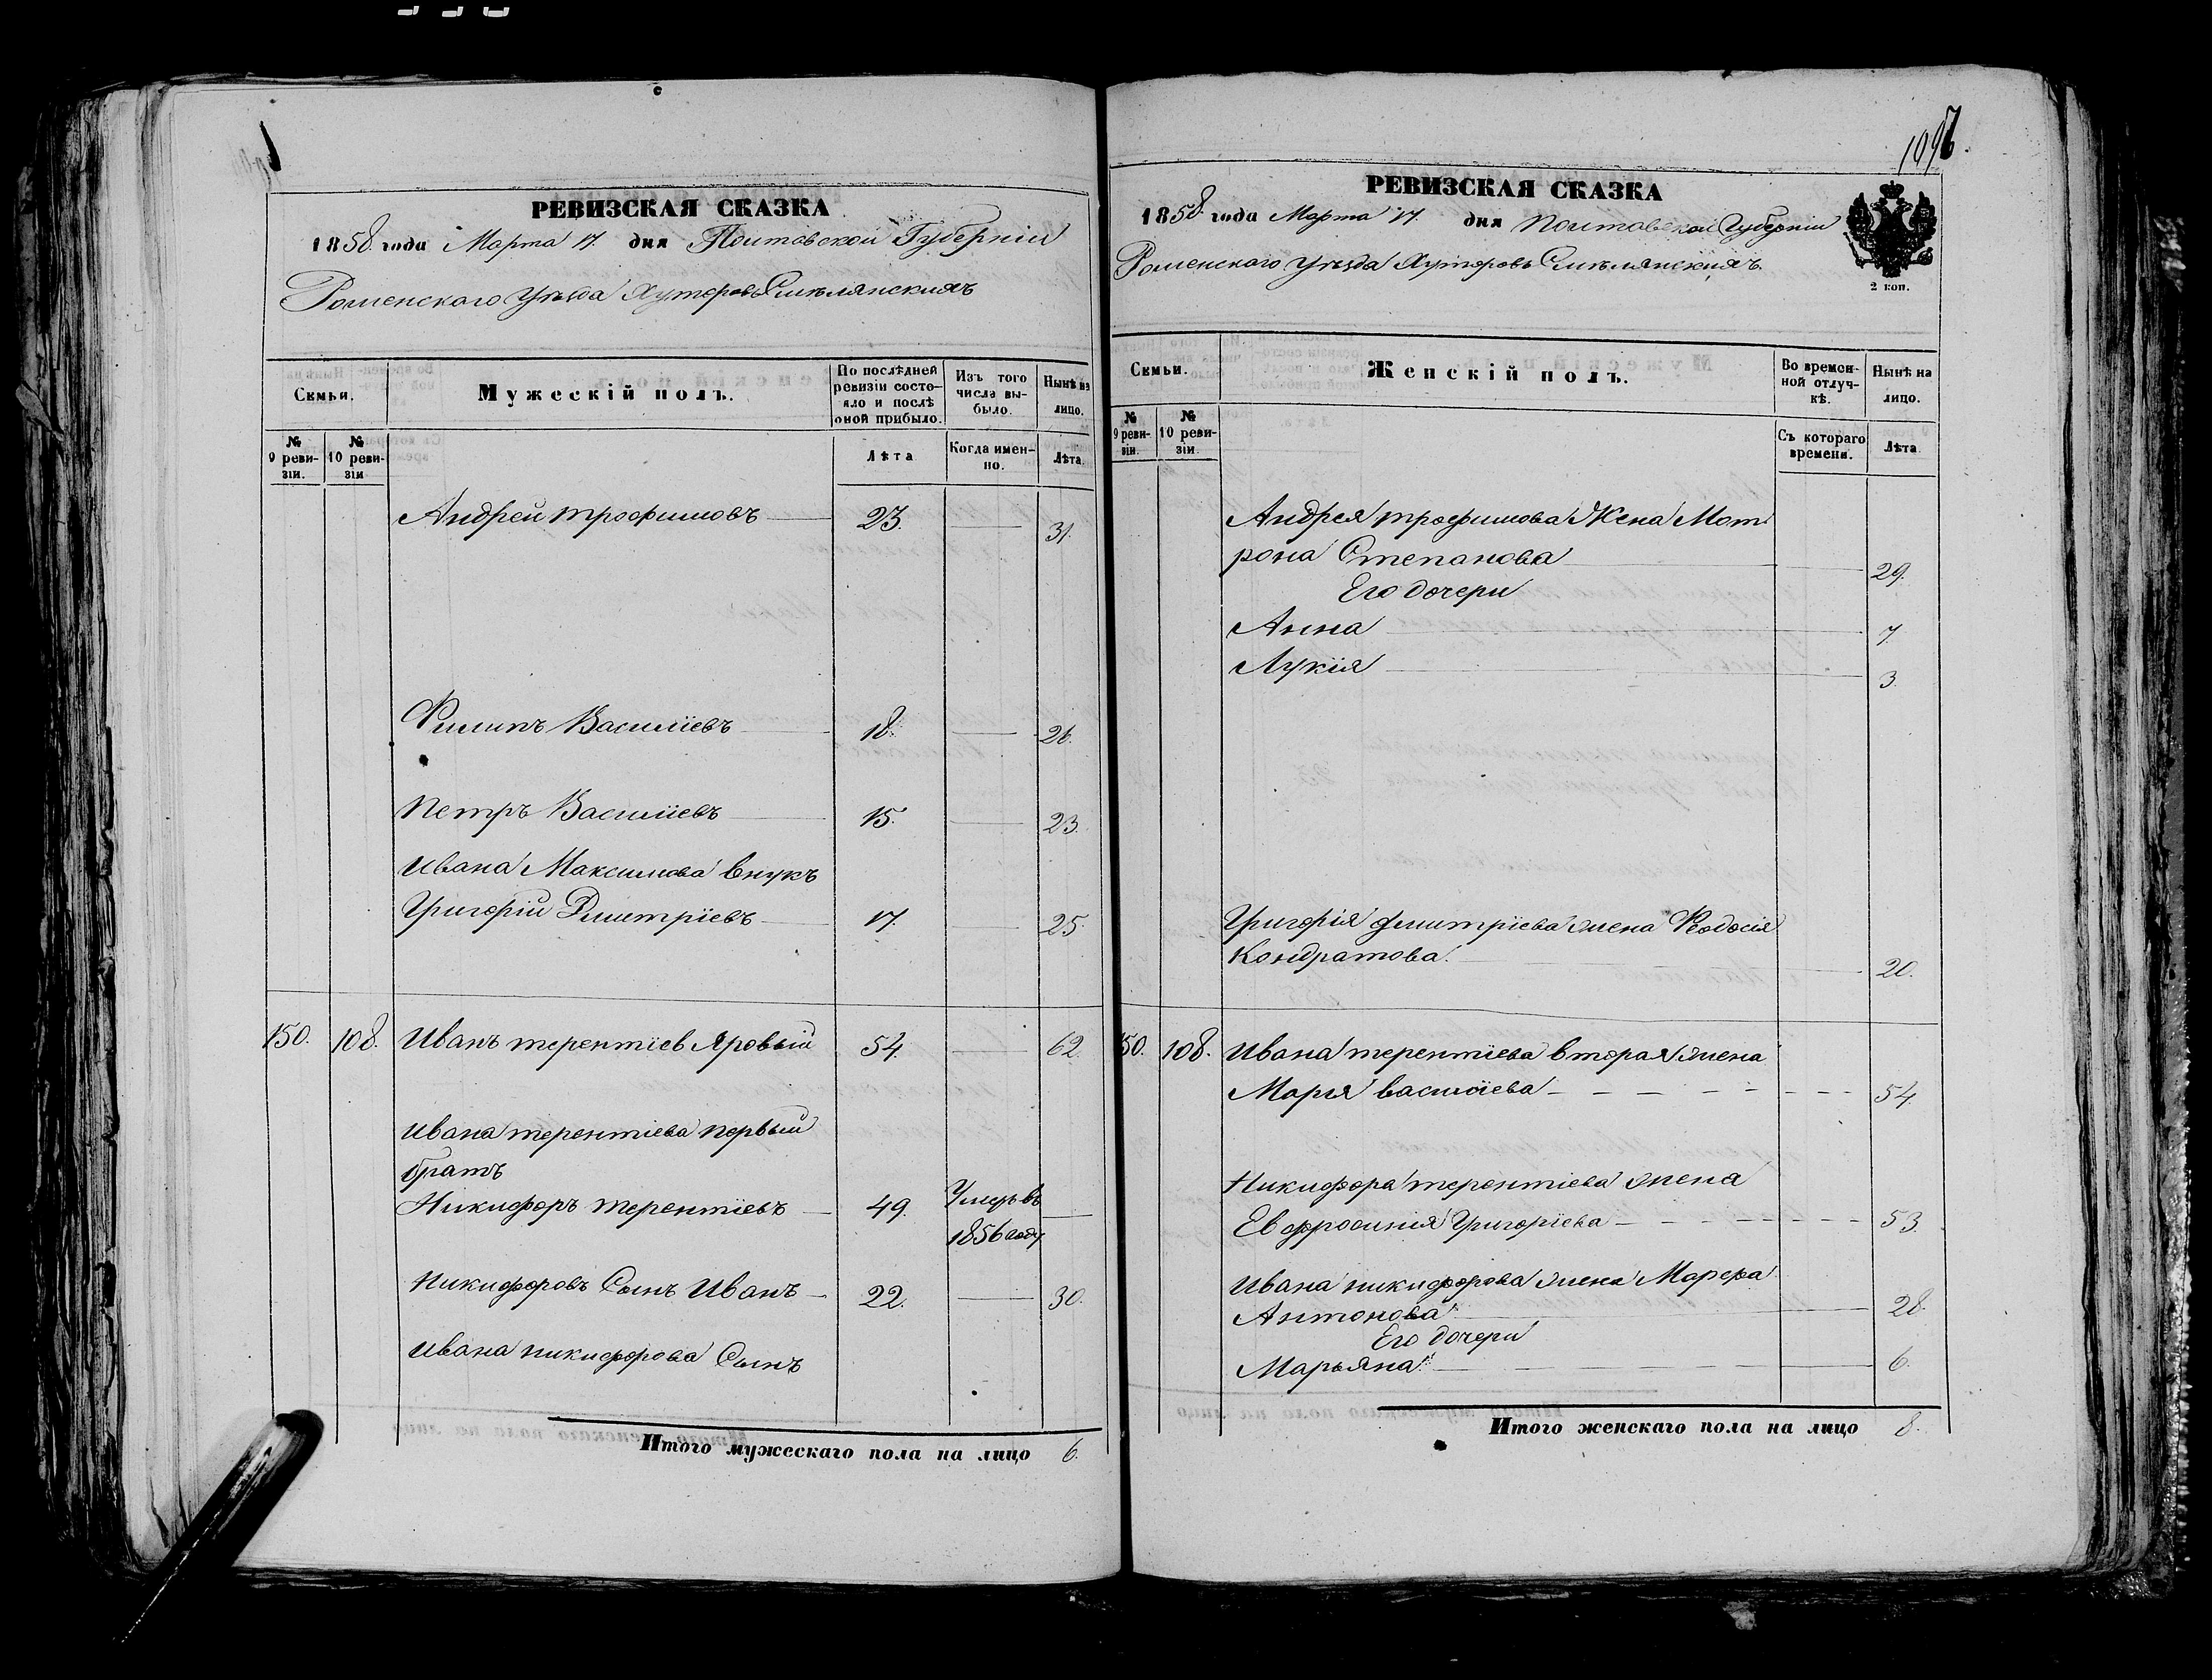 РЕВИЗСКАЯ СКАЗКА
1858 года Марта 17. дня Полтавской Губерніи
Роменскаго Уѣзда Хуторовъ Смѣлянскихъ
Семьи.
Мужескій полъ.
По послѣдней ревизіи состояло и послѣ оной прибыло.
Изъ того числа выбыло.
Нынѣ на лицо.
№ 9 ревизіи.
№ 10 ревизіи
Лѣта
Когда именно.
Лѣта.
Андрей трофимовъ 23. 31.
Филипъ Василіевъ 18. 26.
Петръ Василіевъ 15. 23.
Ивана Максимова внукъ
Григорій Дмитріевъ 17. 25.
150. 108. Иванъ терентіев Яровый 54. 62.
Ивана терентіева первый
братъ
Никифоръ терентіевъ 49. Умеръ въ
1856 году
Никифоровъ Сынъ Иванъ 22. 30.
Ивана никифорова Сынъ
Итого мужескаго пола на лицо 6.
РЕВИЗСКАЯ СКАЗКА
1858 года Марта 17. дня Полтавской Губерніи
Роменскаго Уѣзда Хуторовъ Смѣлянскихъ
2 коп.
Семьи.
Женскій полъ.
Во временной отлучкѣ.
Нынѣ на лицо.
№ 9 ревизіи.
№ 10 ревизіи
Съ котораго времени.
Лѣта
Андрея трофимова Жена Мот
рона Степанова 29.
Его дочери
Анна 7.
Лукія 3.
Григорія дмитріева жена Феодосія
Кондратова. 20.
150. 108. Ивана терентіева вторая жена
Марія василіева 54.
Никифора терентіева жена
Евфросинія Григоріева 53.
Ивана никифорова жена Марфа
Антонова 28.
Его дочери
Марьяна 6.
Итого женскаго пола на лицо 8.